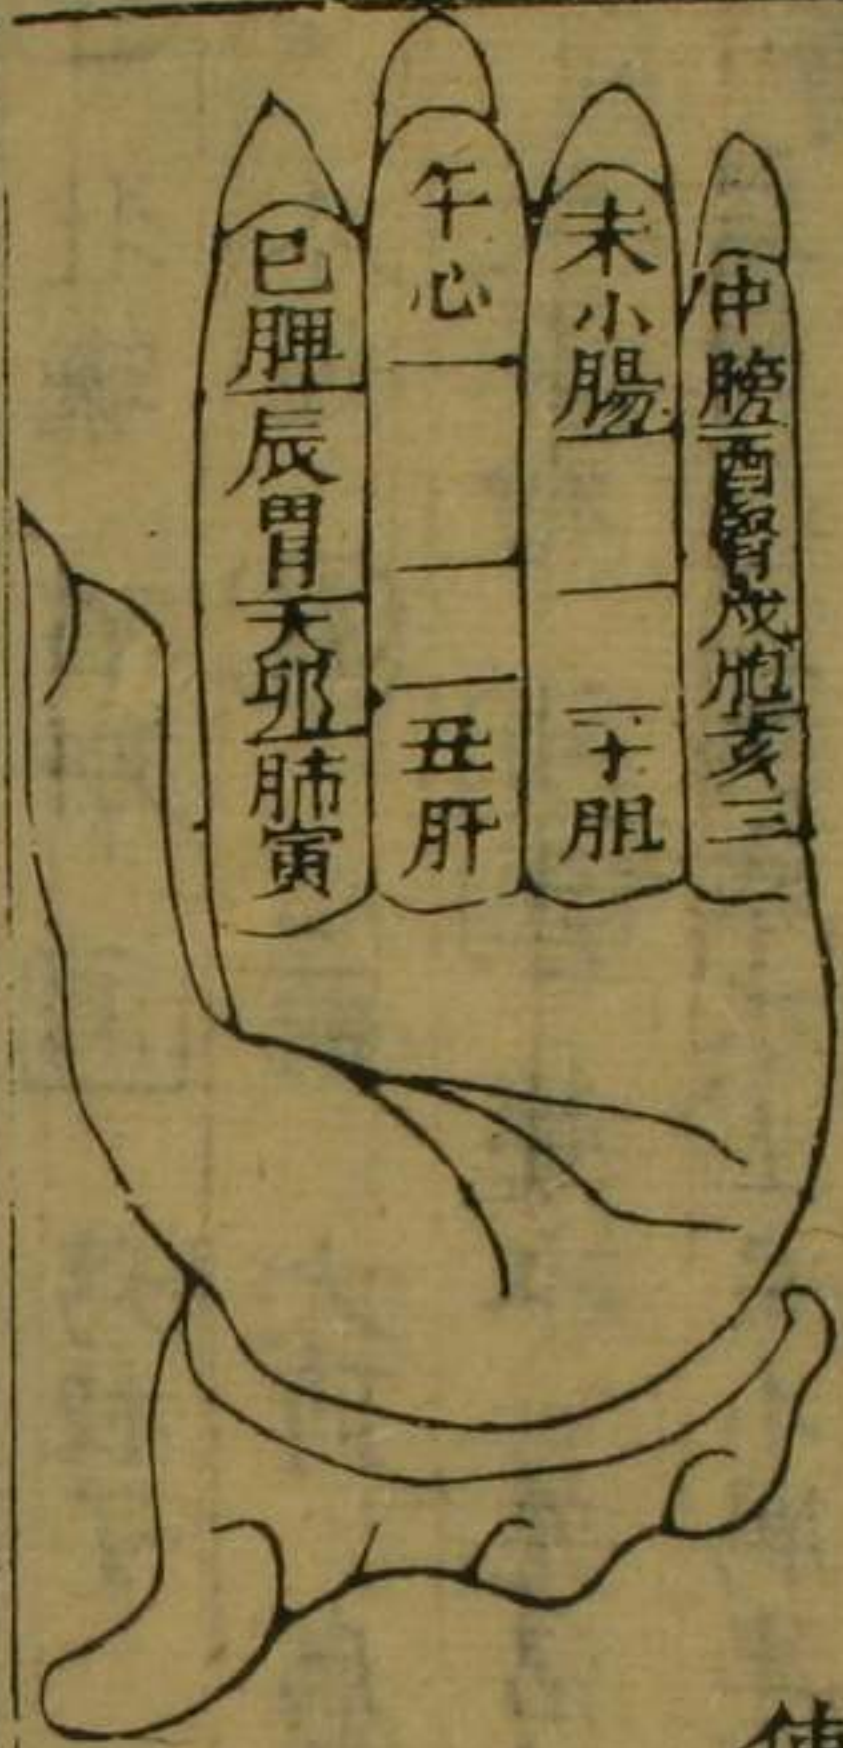 申膀酉腎戌胞亥三
未小腸
十胆
午心
丑肝
巳脾辰胃大卯肺寅